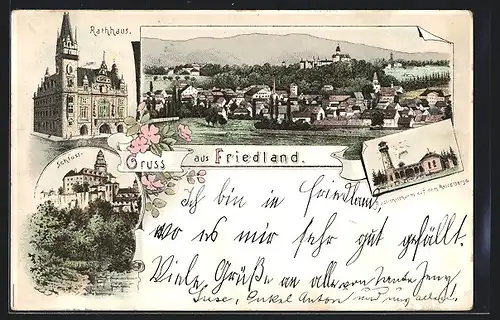 Rathhaus.
Schloss.
Gruss aus Friedland.
auf dem Resselberge.
Ich bin in Friedland,
wo es mir sehr gut gefällt.
Viele Grüße an alle von Tante Jeny,
Onkel Anton und uns allen.